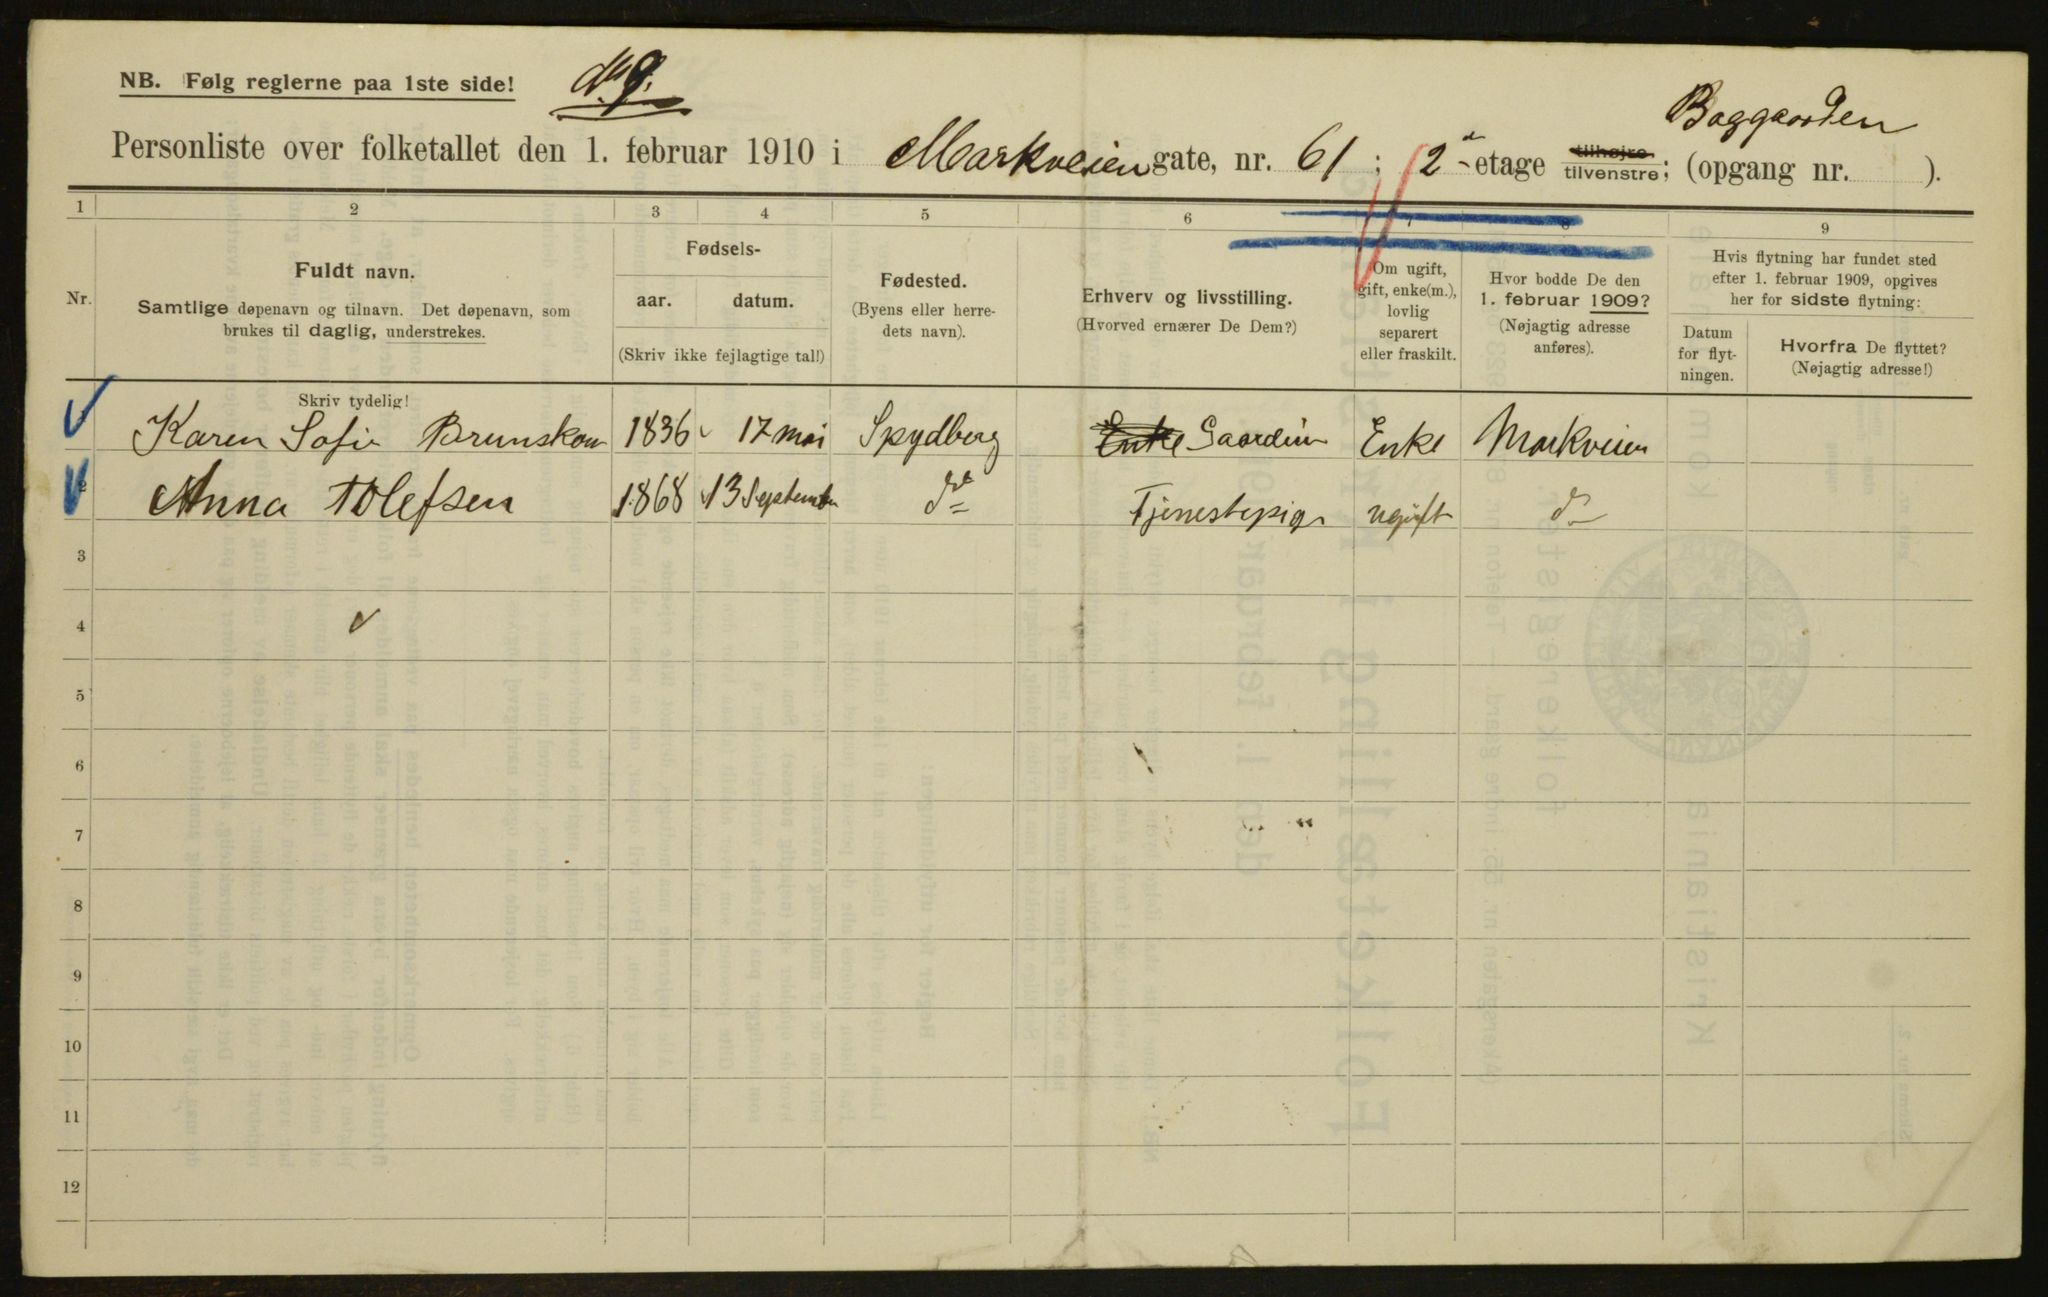 NB. Følg reglerne paa 1ste side!
No 9.
Baggaarden
Personliste over folketallet den 1. februar 1910 i Markveien gate, nr. 61 ; 2d etage tilhøjre tilvenstre; (opgang nr. ).
1 2 3 4 5 6 7 8 9
Nr.
Fuldt navn.
Samtlige døpenavn og tilnavn. Det døpenavn, som
brukes til daglig, understrekes.
Fødsels-
aar.
datum.
(Skriv ikke fejlagtige tal!)
Fødested.
(Byens eller herre-
dets navn).
Erhverv og livsstilling.
(Hvorved ernærer De Dem?)
Om ugift,
gift, enke(m.),
lovlig
separert
eller fraskilt.
Hvor bodde De den
1. februar 1909?
(Nøjagtig adresse
anføres).
Hvis flytning har fundet sted
efter 1. februar 1909, opgives
her for sidste flytning:
Datum
for flyt-
ningen.
Hvorfra De flyttet?
(Nøjagtig adresse!)
Skriv tydelig!
Karen Sofie Brunskow 1836 17 mai Spydberg Enke Gaardein Enke Markveien
2 Anna Tolefsen 1868 13 September do Tjenestepige ugift do
3
4
5
6
7
8
9
10
11
12